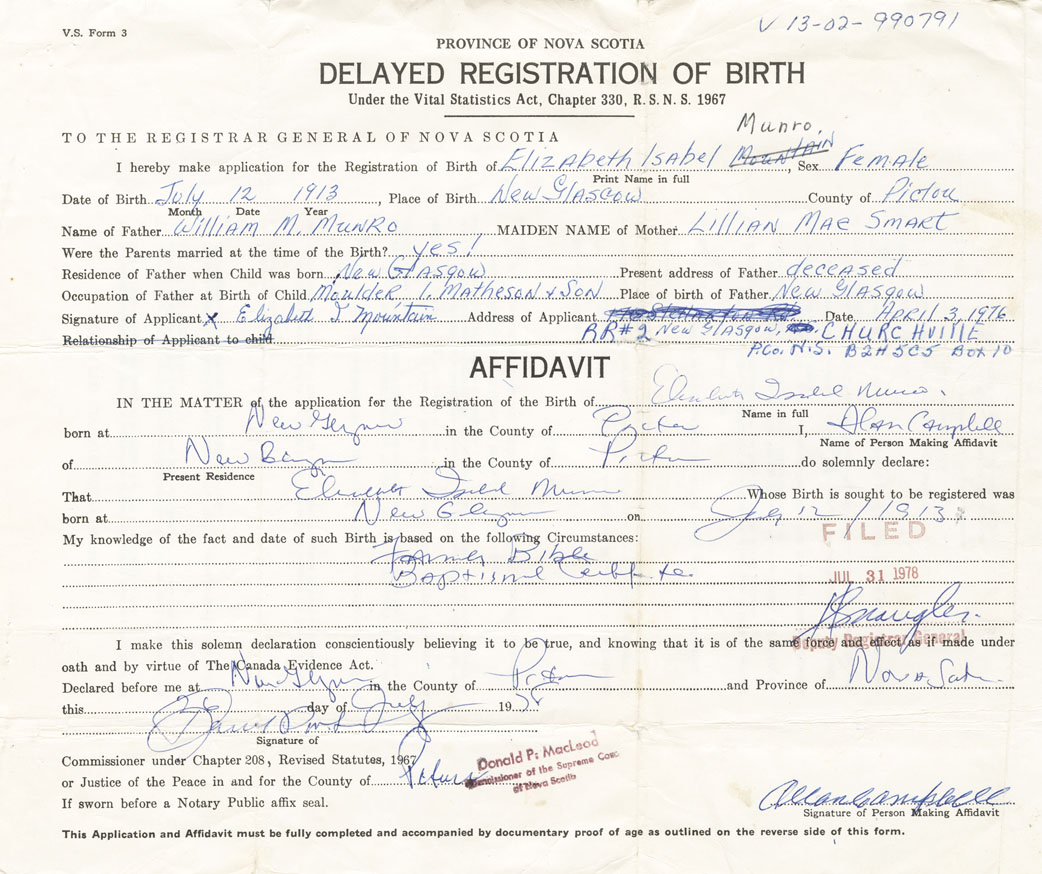 V.S. Form 3
V 13-02-990791
PROVINCE OF NOVA SCOTIA
DELAYED REGISTRATION OF BIRTH
Under the Vital Statistics Act, Chapter 330, R.S.N.S. 1967
TO THE REGISTRAR GENERAL OF NOVA SCOTIA
Munro.
I hereby make application for the Registration of Birth of Elizabeth Isabel Mountain, Sex Female
Print Name in full
Date of Birth July 12 1913, Place of Birth New Glasgow County of Pictou
Month Date Year
Name of Father William M. Munro MAIDEN NAME of Mother Lillian Mae Smart
Were the Parents married at the time of the Birth? yes!
Residence of Father when Child was born New Glasgow Present address of Father deceased
Occupation of Father at Birth of Child Moulder I. Matheson & Son Place of birth of Father New Glasgow
Signature of Applicant x Elizabeth I Mountain Address of Applicant Date April 3, 1976
RR#2 New Glasgow, CHURCHVILLE
Relationship of Applicant to child
P.Co. N.S. B2H5C5 Box 10
AFFIDAVIT
IN THE MATTER of the application for the Registration of the Birth of Elizabeth Isabel Munro.
Name in full
born at New Glasgow in the County of Pictou I, Allan Campbell
Name of Person Making Affidavit
of New in the County of Pictou do solemnly declare:
Present Residence
That Elizabeth Isabel Munro Whose Birth is sought to be registered was
born at New Glasgow on July 12 / 1913
My knowledge of the fact and date of such Birth is based on the following Circumstances:
Family Bible
Baptismal Certificate
FILED
JUL 31 1978
Deputy Registrar General
I make this solemn declaration conscientiously believing it to be true, and knowing that it is of the same force and effect as if made under
oath and by virtue of The Canada Evidence Act.
Declared before me at New Glasgow in the County of Pictou and Province of Nova Scotia
this 26 day of July 1978
Signature of
Commissioner under Chapter 208, Revised Statutes, 1967
or Justice of the Peace in and for the County of Pictou
Donald P. MacLeod
Commissioner of the Supreme Court
of Nova Scotia
If sworn before a Notary Public affix seal.
Allan Campbell
Signature of Person Making Affidavit
This Application and Affidavit must be fully completed and accompanied by documentary proof of age as outlined on the reverse side of this form.